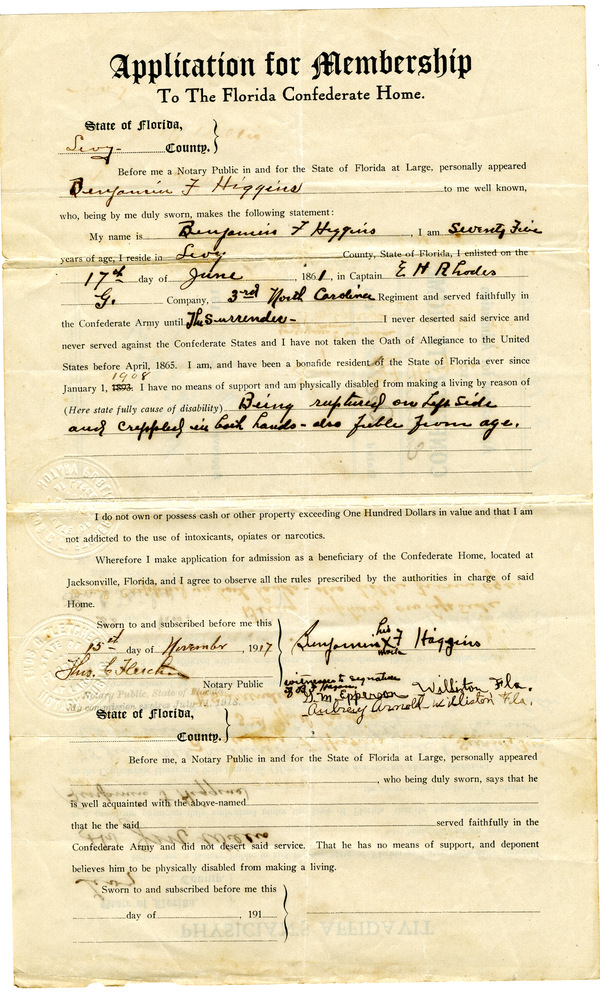 Application for Membership
To The Florida Confederate Home.
State of Florida,
Levy County.
Before me a Notary Public in and for the State of Florida at Large, personally appeared
Benjamin F Higgins to me well known,
who, being by me duly sworn, makes the following statement:
My name is Benjamin F Higgins, I am Seventy Five
years of age, I reside in Levy County, State of Florida, I enlisted on the
17th day of June, 1861, in Captain E H Rhodes
G. Company, 3rd North Carolina Regiment and served faithfully in
the Confederate Army until The Surrender- I never deserted said service and
never served against the Confederate States and I have not taken the Oath of Allegiance to the United
States before April, 1865. I am, and have been a bonafide resident of the State of Florida ever since
1908
January 1, 1893. I have no means of support and am physically disabled from making a living by reason of
(Here state fully cause of disability) Being ruptured on Left Side
and crippled in both hands - also feble from age.
I do not own or possess cash or other property exceeding One Hundred Dollars in value and that I am
not addicted to the use of intoxicants, opiates or narcotics.
Wherefore I make application for admission as a beneficiary of the Confederate Home, located at
Jacksonville, Florida, and I agree to observe all the rules prescribed by the authorities in charge of said
Home.
Sworn to and subscribed before me this
15 day of November, 1917
his
Benjamin X F Higgins
mark
Notary Public
Notary Public, State of
My commission expires July 14, 1918.
witness to signature
G. M. Epperson Williston Fla.
Aubrey Arnold Williston Fla.
State of Florida,
County.
Before me, a Notary Public in and for the State of Florida at Large, personally appeared
, who being duly sworn, says that he
is well acquainted with the above-named
that he the said served faithfully in the
Confederate Army and did not desert said service. That he has no means of support, and deponent
believes him to be physically disabled from making a living.
Sworn to and subscribed before me this
day of , 191